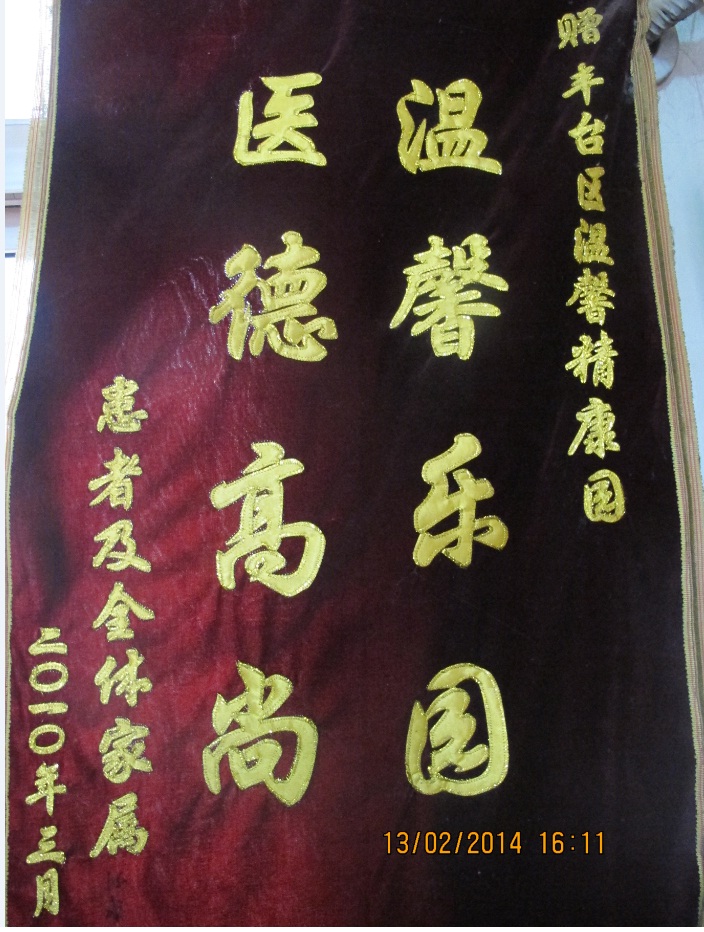 赠丰台区温馨精康园
温馨乐园
医德高尚
患者及全体家属
二〇一〇年三月
13/02/2014 16:11